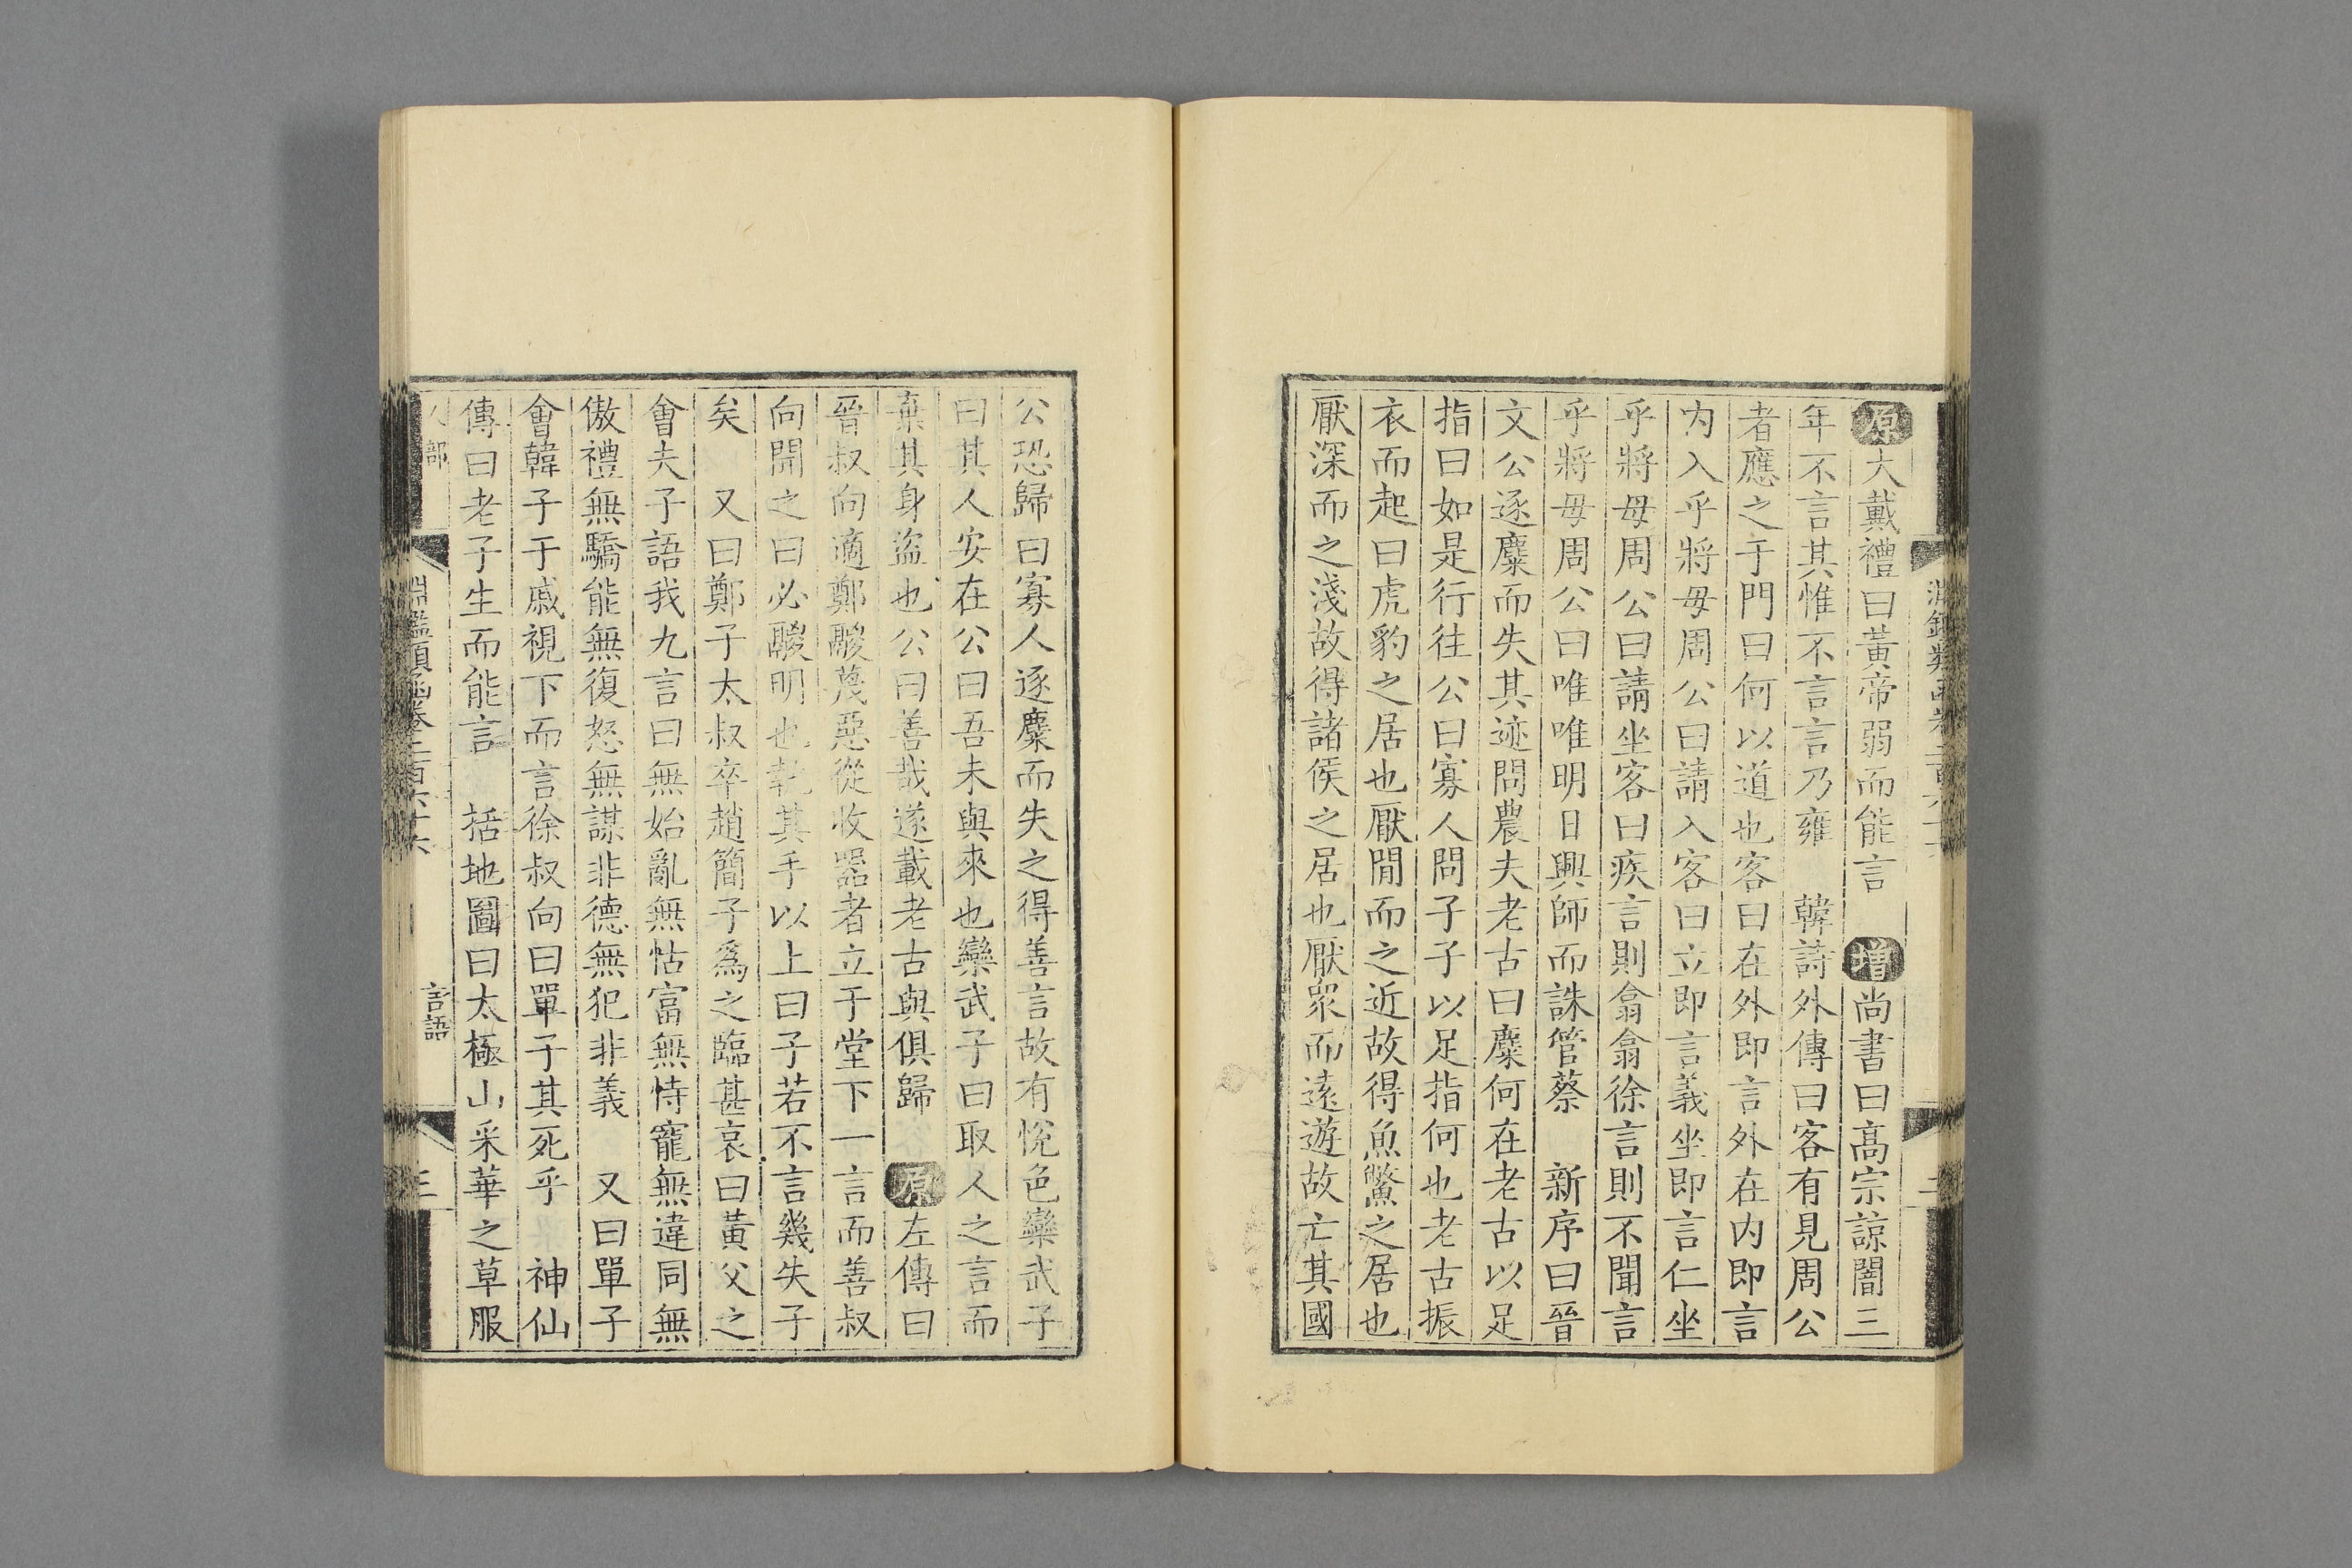 原大戴禮曰黃帝弱而能言　增尚書曰高宗諒闇三
年不言其惟不言言乃雍　韓詩外傳曰客有見周公
者應之于門曰何以道也客曰在外即言外在内即言
内入乎將毋周公曰請入客曰立即言義坐即言仁坐
乎將毋周公曰請坐客曰疾言則翕翕徐言則不聞言
乎將毋周公曰唯唯明日興師而誅管蔡　新序曰晉
文公逐麋而失其迹問農夫老古曰麋何在老古以足
指曰如是行往公曰寡人問子子以足指何也老古振
衣而起曰虎豹之居也厭閒而之近故得魚鱉之居也
厭深而之淺故得諸侯之居也厭眾而遠遊故亡其國
公恐歸曰寡人逐麋而失之得善言故有悅色欒武子
曰其人安在公曰吾未與來也欒武子曰取人之言而
棄其身盜也公曰善哉遂載老古與俱歸　原左傳曰
晉叔向適鄭鬷蔑惡從收器者立于堂下一言而善叔
向聞之曰必鬷明也執其手以上曰子若不言幾失子
矣　又曰鄭子太叔卒趙簡子為之臨甚哀曰黃父之
會夫子語我九言曰無始亂無怙富無恃寵無違同無
傲禮無驕能無復怒無謀非德無犯非義　又曰單子
會韓子于戚視下而言徐叔向曰單子其死乎　神仙
傳曰老子生而能言　括地圖曰太極山采華之草服
人部
淵鑑類函卷二百六十六
言語
三